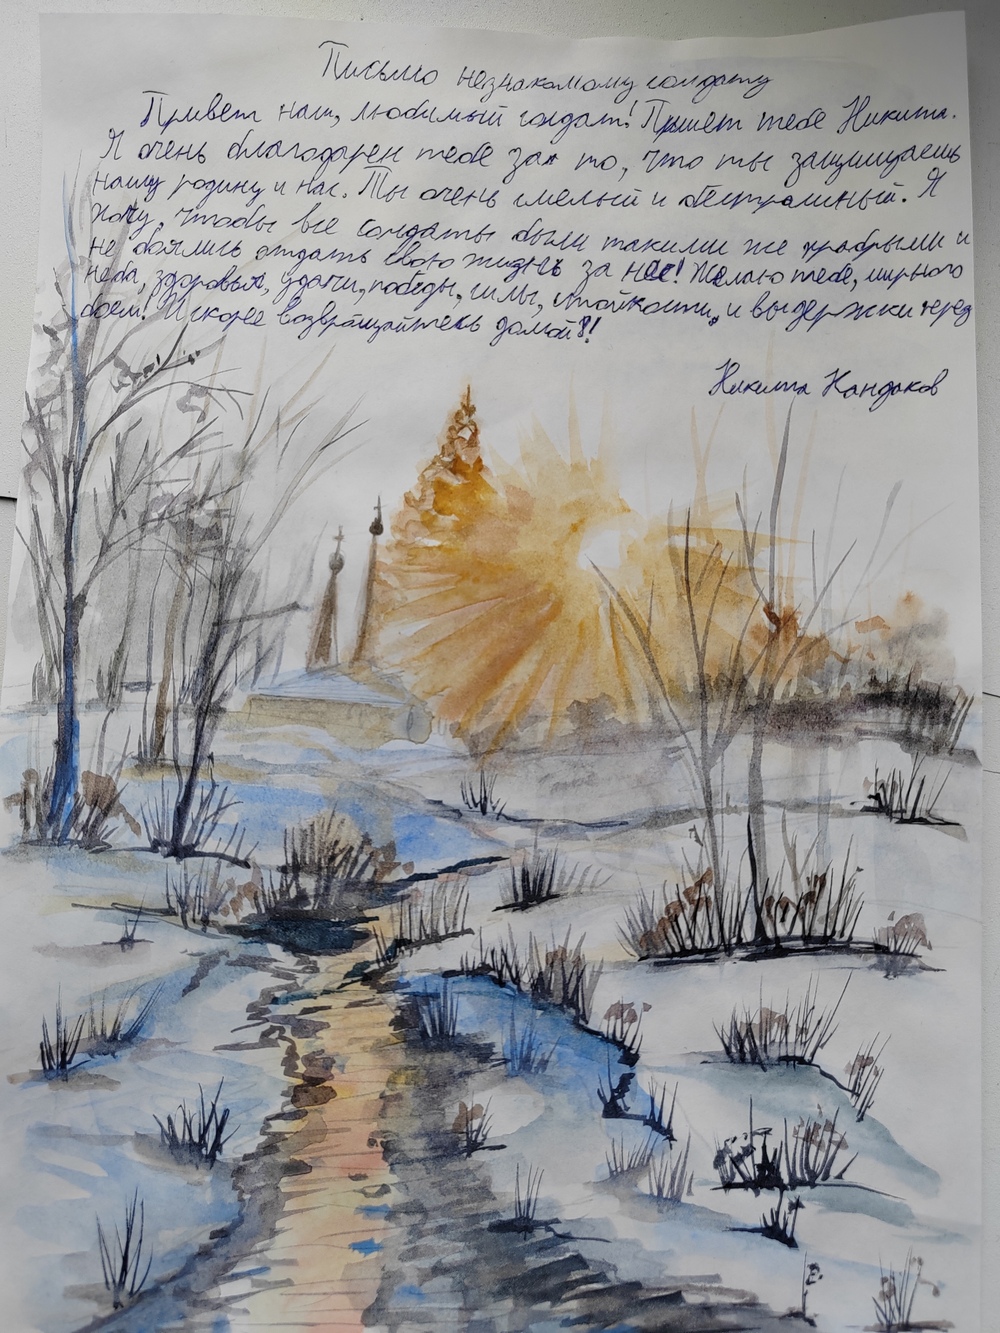 Письмо незнакомому солдату
Привет наш, любимый солдат! Пишет тебе Никита.
Я очень благодарен тебе за то, что ты защищаешь
нашу родину и нас. Ты очень смелый и бесстрашный. Я
хочу, чтобы все солдаты были такими же храбрыми и
не боялись отдать свою жизнь за нас! Желаю тебе, мирного
неба, здоровья, удачи, победы, силы, стойкости, и выдержки перед
боем! И скорее возвращайтесь домой!
Никита Кандаков